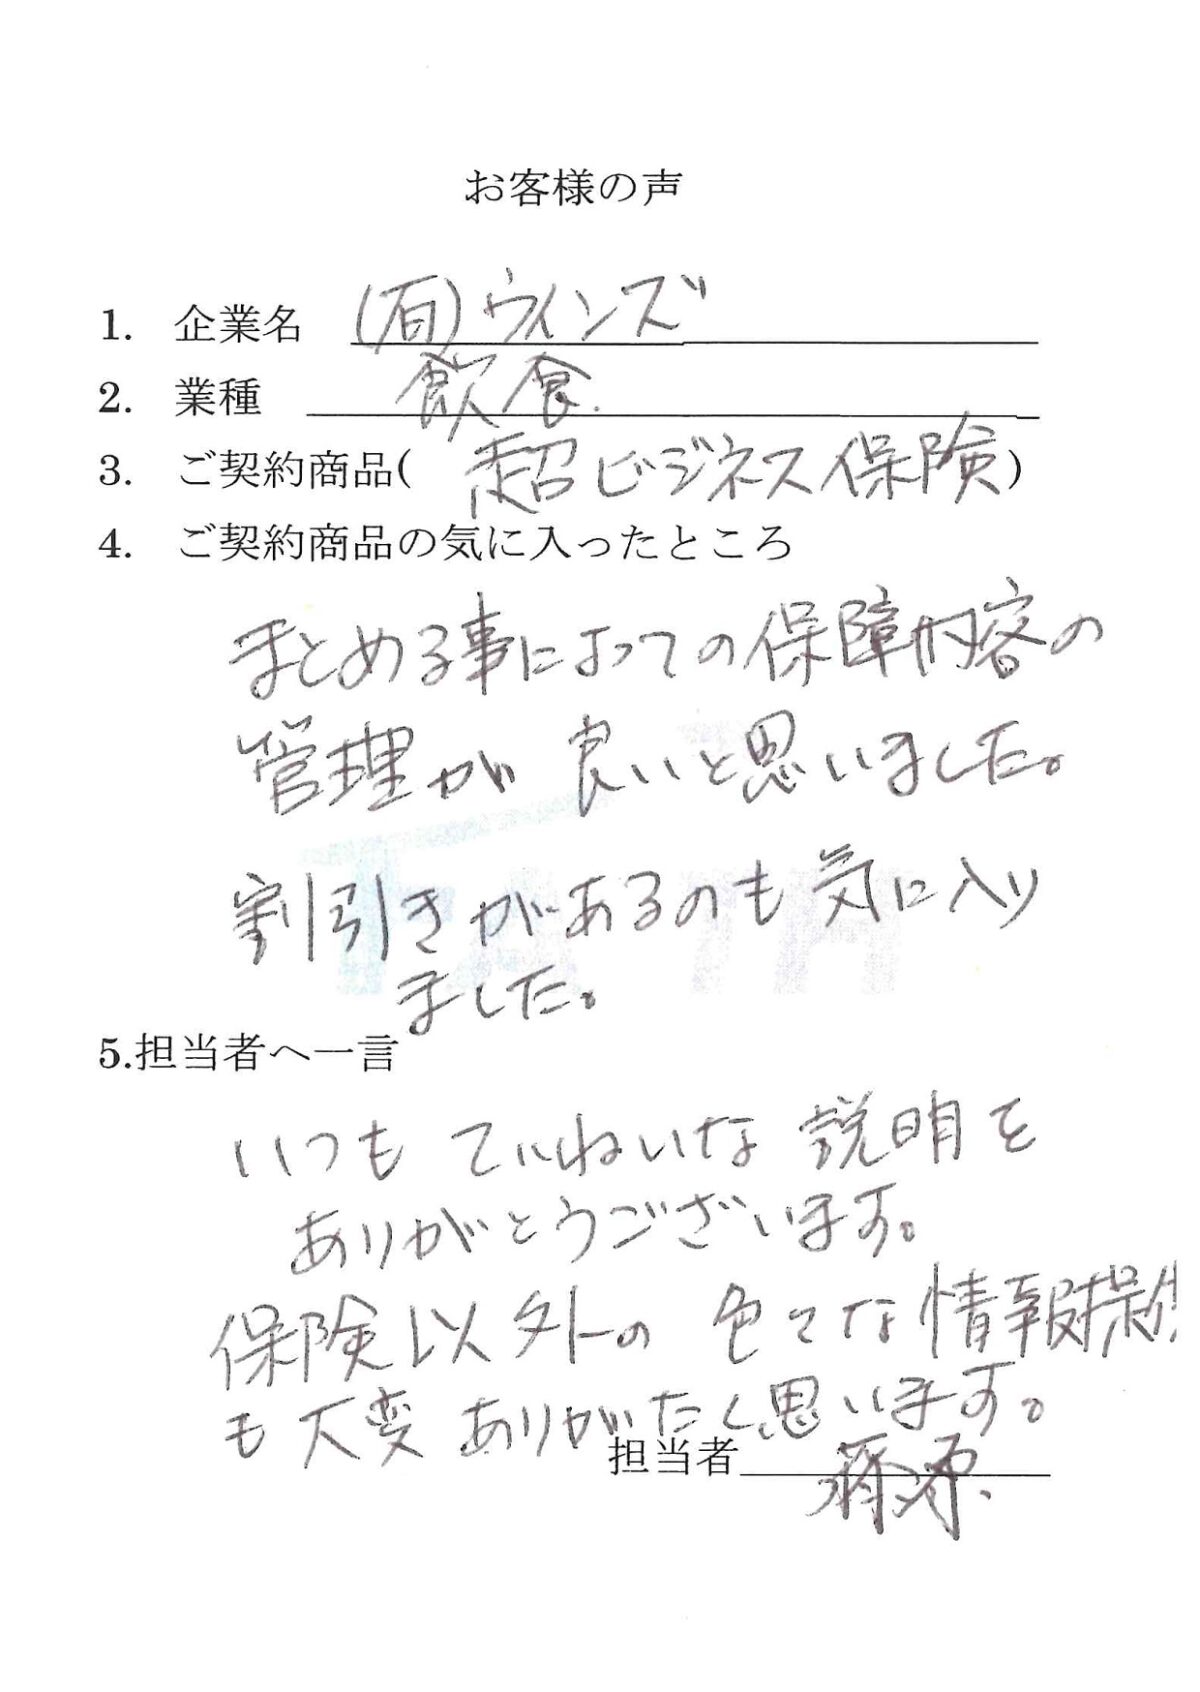 お客様の声
1. 企業名 (有)ウインズ
2. 業種 飲食.
3. ご契約商品( 超ビジネス保険)
4. ご契約商品の気に入ったところ
まとめる事によっての保障内容の
管理が良いと思いました。
割引きがあるのも気に入り
ました。
5.担当者へ一言
いつもていねいな説明を
ありがとうございます。
保険以外の色々な情報提供
も大変ありがたく思います。
担当者 藤原